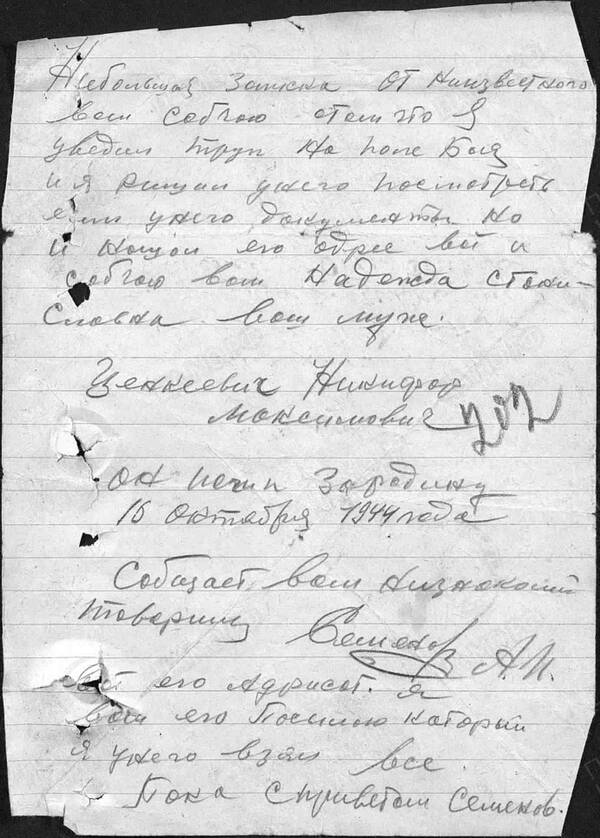 Небольшая записка от ниизвестного
вам собчаю отом что я
уведил труп на поле боя
и я ришил унего посмотреть
если унего документы но
и нашол его адрес вот и
собчаю вам Надежда Стани-
славна ваш муж.
Ценкеевич Никифор
Максимович 202
он погиб Зародину
16 октября 1944 года
Собщает вам низнакомий
товарищ Семенов А.П.
вот его адрисот. я
вам его посилаю который
я унего взял все.
Пока с приветом Семенов.